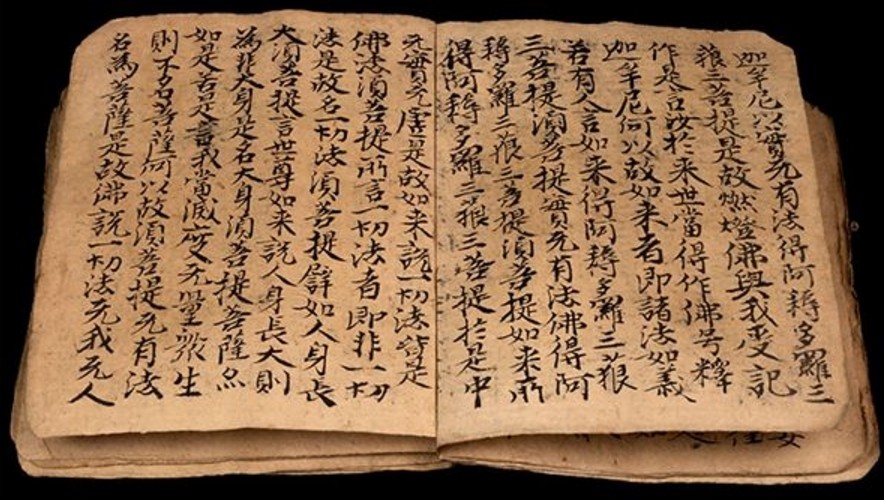 迦牟尼以實无有法得阿耨多羅三
藐三菩提是故燃燈佛與我受記
作是言汝於来世當得作佛号釋
迦牟尼何以故如来者即諸法如義
若有人言如来得阿耨多羅三藐
三菩提湏菩提實无有法佛得阿
耨多羅三藐三菩提湏菩提如来所
得阿耨多羅三藐三菩提於是中
无實无虛是故如来說一切法皆是
佛法湏菩提所言一切法者即非一切
法是故名一切法湏菩提譬如人身長
大湏菩提言世尊如来說人身長大則
為非大身是名大身湏菩提菩薩亦
如是若是言我當滅度无量眾生
則不名菩薩何以故湏菩提无有法
名為菩薩是故佛說一切法无我无人